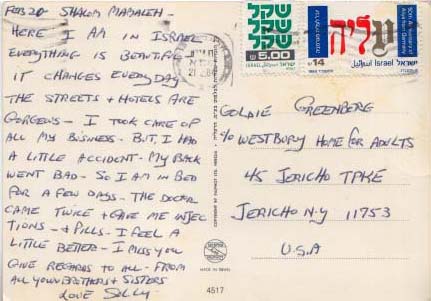 FEB 20 SHALOM MABALEH -
HERE I AM IN ISRAEL
EVERYTHING IS BEAUTIFUL
IT CHANGES EVERYDAY
THE STREETS + HOTELS ARE
GORGEOUS - I TOOK CARE OF
ALL MY BUSINESS - BUT, I HAD
A LITTLE ACCIDENT - MY BACK
WENT BAD - SO I AM IN BED
FOR A FEW DAYS - THE DOCTOR
CAME TWICE + GAVE ME INJEC
TIONS - + PILLS - I FEEL A
LITTLE BETTER - I MISS YOU
GIVE REGARDS TO ALL - FROM
ALL YOUR BROTHERS + SISTERS
LOVE SOLLY -
שקל
שקל
5.00
ISRAEL
עליה
14
ISRAEL ישראל
GOLDIE GREENBERG
c/o WESTBURY HOME FOR ADULTS
45 JERICHO TPKE
JERICHO N-Y 11753
U.S.A
MADE IN ISRAEL
4517